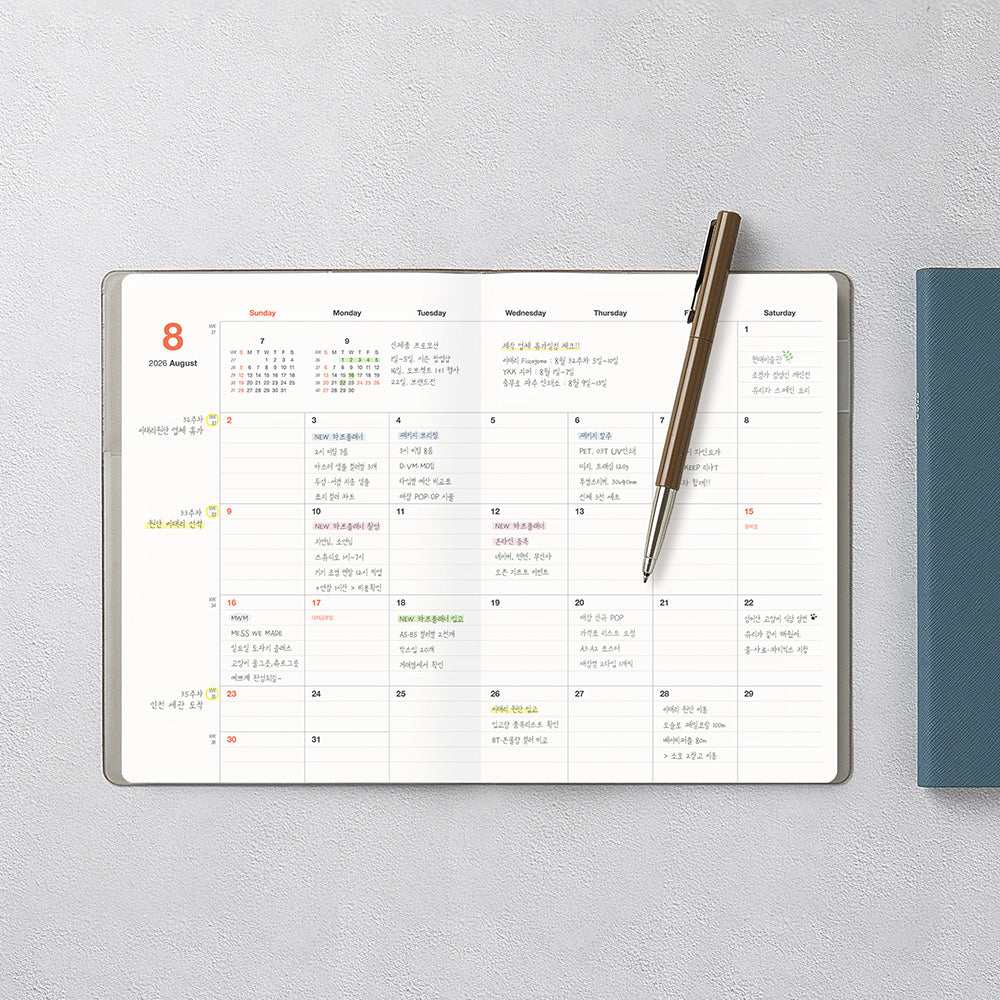 8
2026 August
Sunday Monday Tuesday Wednesday Thursday Saturday
WK 31
7
WK S M T W T F S
27 1 2 3 4
28 5 6 7 8 9 10 11
29 12 13 14 15 16 17 18
30 19 20 21 22 23 24 25
31 26 27 28 29 30 31
9
WK S M T W T F S
36 1 2 3 4 5
37 6 7 8 9 10 11 12
38 13 14 15 16 17 18 19
39 20 21 22 23 24 25 26
40 27 28 29 30
신제품 프로모션
1일~5일, 시즌 팝업샵
16일, 오브젝트 1+1 행사
22일, 브랜드전
제작 업체 휴가일정 체크!!
이태리 : 8월 32주차 5일~10일
YKK 지퍼 : 8월 1일~7일
충무로 파주 인쇄소 : 8월 9일~13일
1
현대미술관
조경가 정영선 개인전
유리타 스페인 요리
32주차
이태리원단 업체 휴가
WK 32
2
3
NEW 하프플래너
2시 미팅 3층
마스터 샘플 컬러별 3개
두성·서경 지종 샘플
표지 컬러 차트
4
패키지 브리핑
3시 미팅 8층
D·VM·MD팀
타입별 예산 비교표
매장 POP·DP 시물
5
6
패키지 발주
PET. 03T UV인쇄
띠지. 트레싱 120g
투명스티커. 30x40mm
전체 3천 세트
7
와인요가
KEEP
함께!!
8
33주차
원단 이태리 선적
WK 33
9
10
NEW 하프플래너 촬영
지연님, 소연님
스튜디오 1시~7시
기기 조명 렌탈 12시 픽업
+연장 1시간 > 비용확인
11
12
NEW 하프플래너
온라인 등록
네이버, 텐텐, 무신사
오픈 기프트 이벤트
13
15
광복절
WK 34
16
MWM
MESS WE MADE
일요일 도자기 클래스
고양이 물그릇,츄르그릇
예쁘게 완성되길~
17
대체공휴일
18
NEW 하프플래너 입고
A5·B5 컬러별 2천개
박스입 20개
거래명세서 확인
19
20
매장 신규 POP
가격표 리스트 요청
A3·A2 포스터
매장별 2타입 1개씩
21
22
성미산 고양이 식당 당번
유리가 같이 해줬어.
물·사료·파티믹스 지참
35주차
인천 세관 도착
WK 35
23
24
25
26
이태리 원단 입고
입고량 품목리스트 확인
BT·본물량 컬러 비교
27
28
이태리 원단 이동
오슬로 페일코랄 100m
베이비퍼플 80m
> 소호 2창고 이동
29
WK 36
30
31